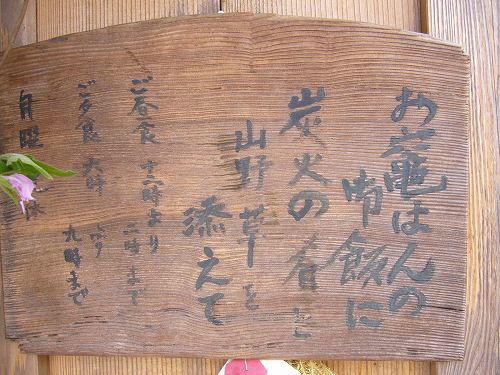 お竈はんの
御飯に
炭火の肴と
山野草を
添えて
ご昼食 十二時より
二時まで
ご夕食 六時
九時まで
月曜 休